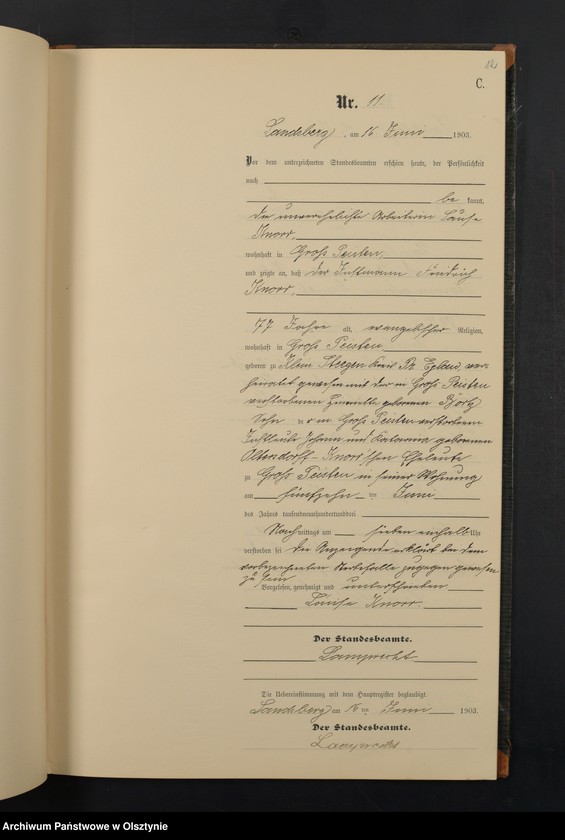 12
C.
Nr. 11.
Landsberg, am 16 Juni 1903.
Vor dem unterzeichneten Standesbeamten erschien heute, der Persönlichkeit
nach
be kannt,
die unverehelichte Arbeiterin Louise
Knorr,
wohnhaft in Groß Peisten,
und zeigte an, daß der Instmann Friedrich
Knorr,
77 Jahre alt, evangelischer Religion,
wohnhaft in Groß Peisten
geboren zu Klein Steegen Kreis Pr. Eylau, ver-
heiratet gewesen mit der in Groß Peisten
verstorbenen geborenen
Sohn der in Groß Peisten verstorbenen
Instleute Johann und Katarina geborenen
Altendorff-Knorr'schen Eheleute
zu Groß Peisten in seiner Wohnung
am fünfzehn ten Juni
des Jahres tausendneunhundertunddrei
Nach mittags um sieben einhalb Uhr
verstorben sei. Die Anzeigende erklärt bei dem
vorbezeichneten Sterbefalle zugegen gewesen
zu sein
Vorgelesen, genehmigt und unterschrieben
Louise Knorr.
Der Standesbeamte.
Lamprecht
Die Uebereinstimmung mit dem Hauptregister beglaubigt.
Landsberg am 16 ten Juni 1903.
Der Standesbeamte.
Lamprecht
Archiwum Państwowe w Olsztynie